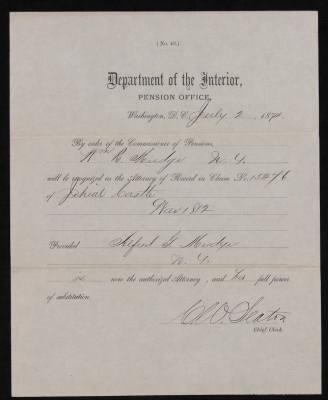 (No. 40.)
Department of the Interior,
PENSION OFFICE,
Washington, D. C., July 2, 187
By order of the Commissioner of Pensions,
N. Y.
will be recognized as the Attorney of Record in Claim No. 15476
of Castle
War 1812
Provided Alfred G. Mudge
N. Y.
is now the authorized Attorney, and has full power
of substitution.
Seaton
Chief Clerk.